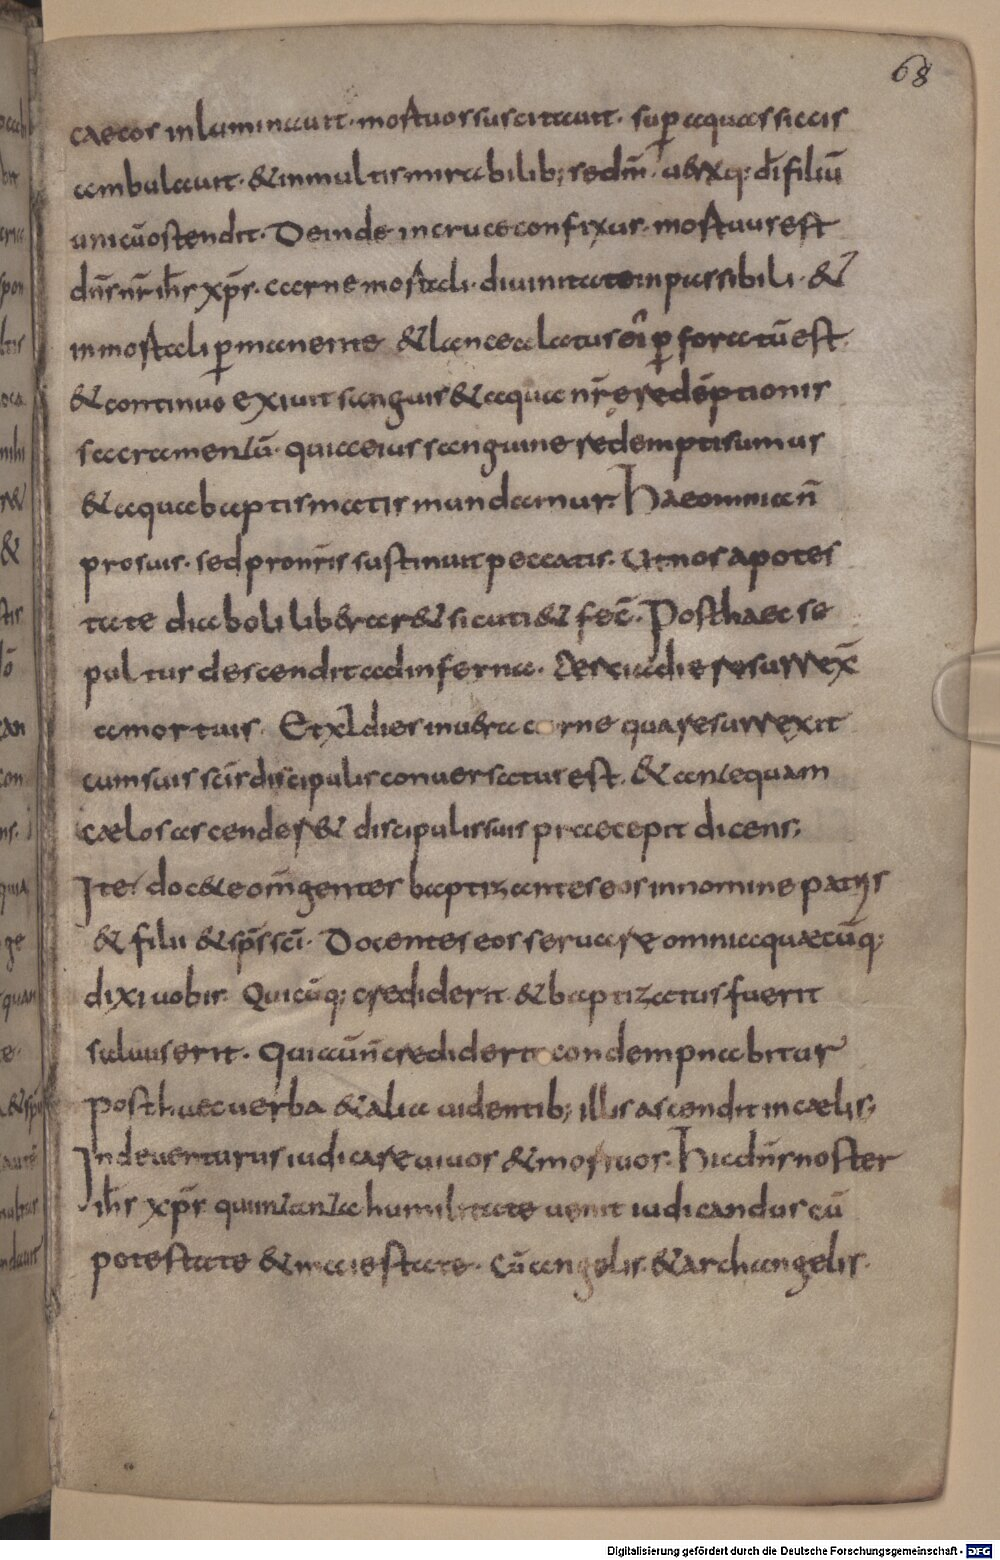 68
caecos inluminauit. mortuos suscitauit. sup̱ aquas siccis
ambulauit. & in multis mirabilib; sed̄m. uerxq; d̄i filiū
unicū ostendit. Deinde in cruce confixus. mortuus est
dn̄s nr̄ ih̄s xp̄s. carne mortali. diuinitate inpassibili. &
inmortali p̱manente & lancea latus ei p̱foratū est.
& continuo exiuit sanguis & aqua nr̄e redēptionis
sacramentū. quia eius sanguine redempti sumus
& aqua baptismatis mundamur. Haec omnia n̄
pro suis. sed pro nr̄is sustinuit peccatis. Ut nos a potes
tate diaboli liberar& sicuti & fec̄. Post haec se
pultus descendit ad inferna. tercia die resurrex̄
a mortuis. Et xl dies in uera carne qua resurrexit
cum suis sc̄is discipulis conuersatus est. & antequam
cælos ascender& discipulis suis praecepit dicens;
Ite. doc&e om̄ gentes baptizantes eos in nomine patris
& filii & sp̄s sc̄i. Docentes eos seruare omnia quæcūq;
dixi uobis. Quicūq; crediderit & baptizatus fuerit
saluus erit. Qui aū n̄ crediderit condempnabitur
post haec uerba & alia uidentib; illis ascendit in cælis;
Inde uenturus iudicare uiuos & mortuos. Hic dn̄s noster
ih̄s xp̄s qui in tanta humilitate uenit iudicandus cū
potestate & maiestate. Cū angelis & archangelis.
Digitalisierung gefördert durch die Deutsche Forschungsgemeinschaft - DFG